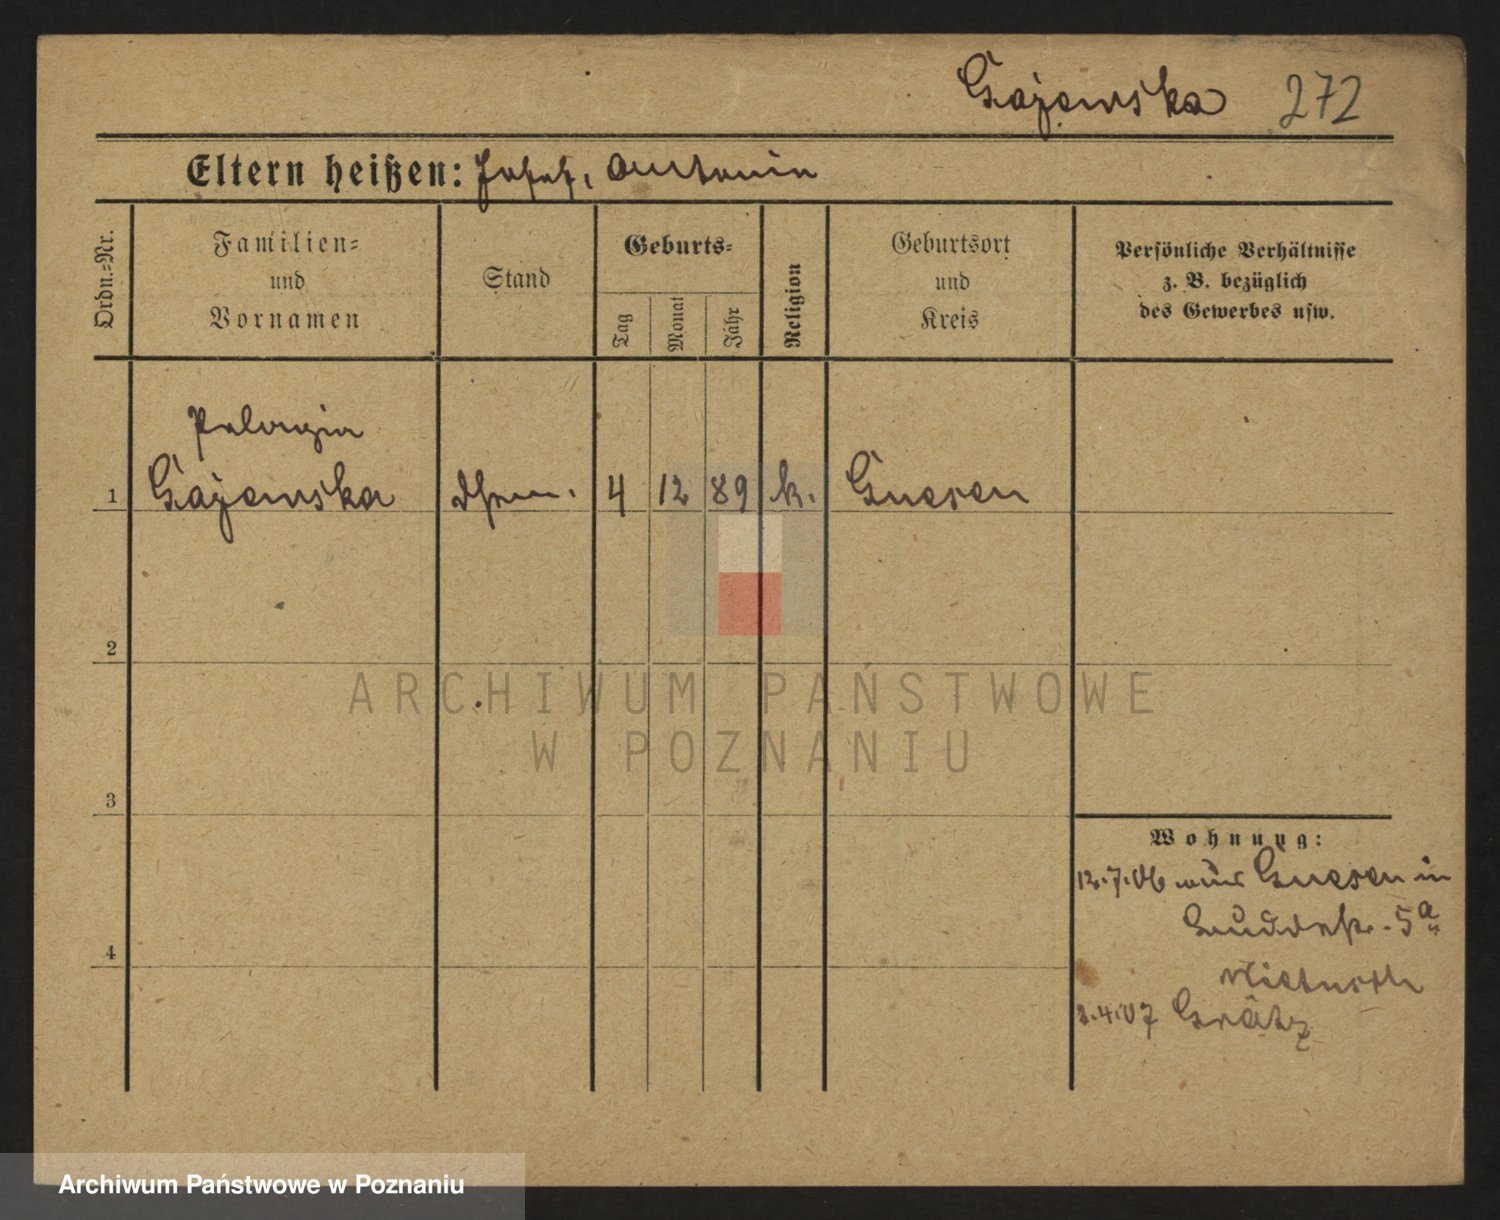 Gajewska 272
Eltern heißen: Josef, Antonie
Ordn.=Nr.
Familien=
und
Vornamen
Stand
Geburts=
Tag
Monat
Jahr
Religion
Geburtsort
und
Kreis
Persönliche Verhältnisse
z. B. bezüglich
des Gewerbes usw.
Pelagia
1 Gajewska 4 12 89 k. Gnesen
2
ARCHIWUM PAŃSTWOWE
W POZNANIU
3
Wohnung:
12.7.06 aus Gnesen in
5a
4
2.4.07 Grätz
Archiwum Państwowe w Poznaniu